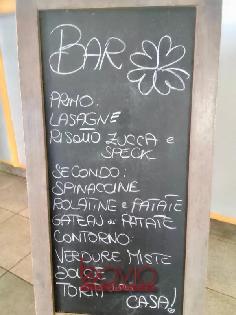 BAR
PRIMO:
LASAGNE
RISOTTO ZUCCA e
SPECK
SECONDO:
SPINACCINE
POLATINE e PATATE
GATEAU di PATATE
CONTORNO:
VERDURE MISTE
CASA!